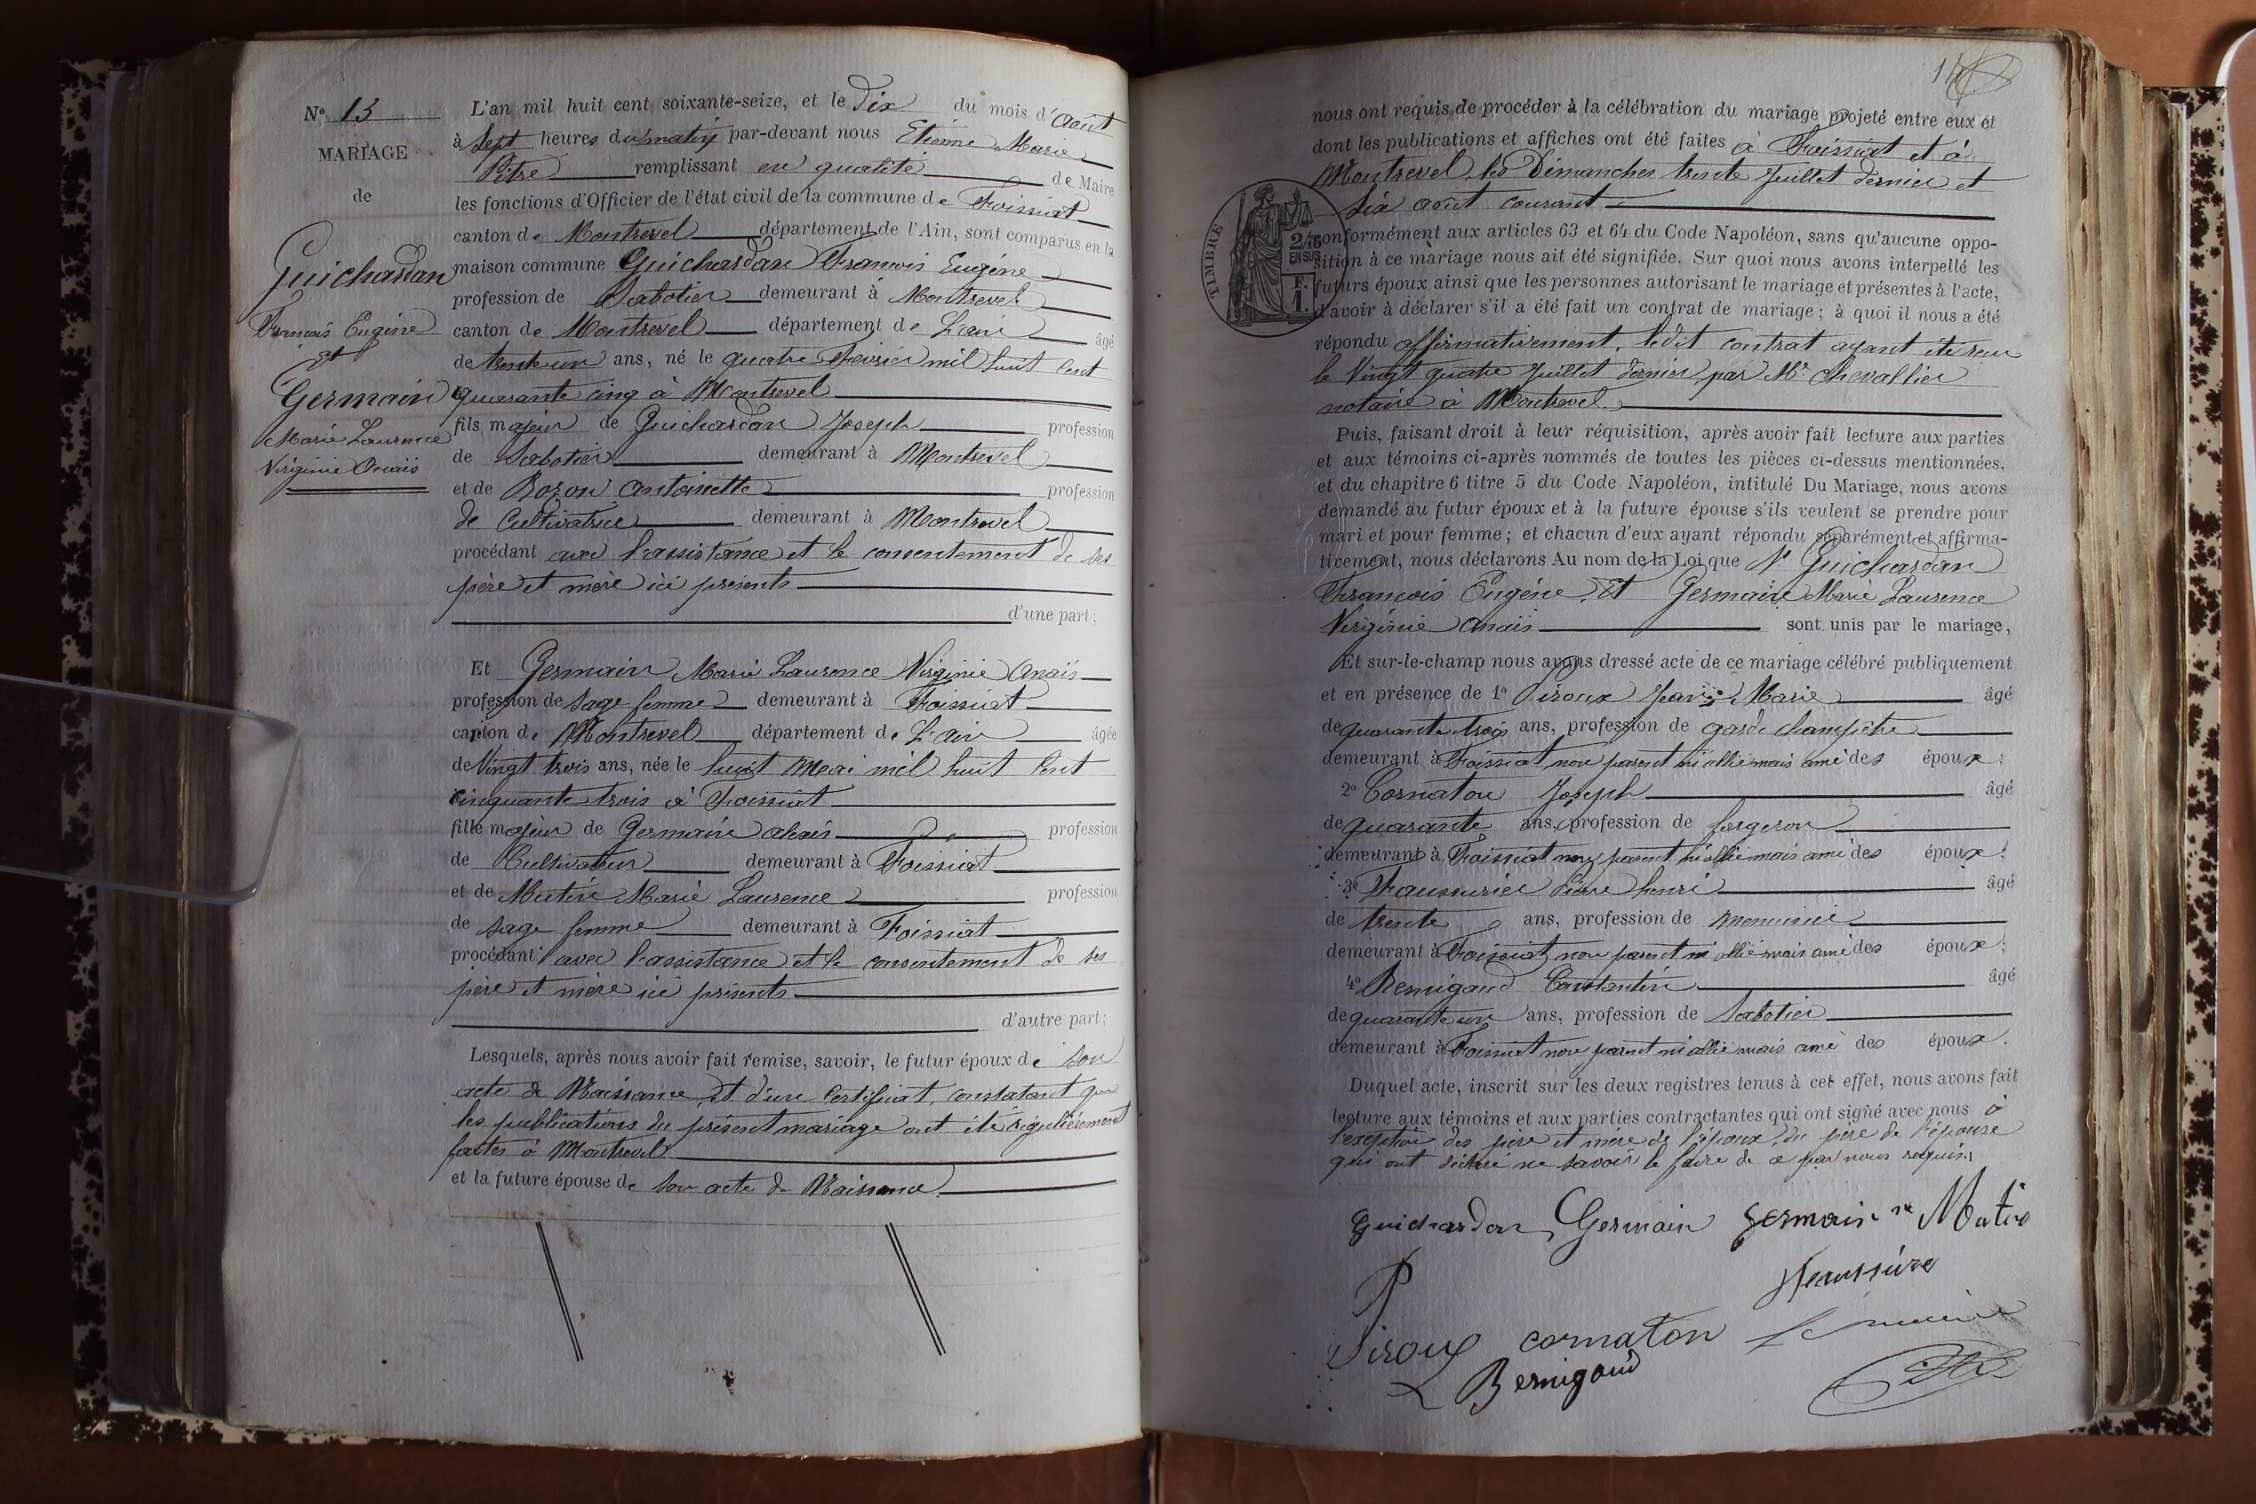 N° 13
MARIAGE
de
Guichardan
François Eugène
Et
Germain
Marie Laurence
Virginie Anaïs
L'an mil huit cent soixante-seize, et le Dix du mois d'Août
à Sept heures du matin par-devant nous Etienne Marie
Pitre remplissant en qualité de Maire
les fonctions d'Officier de l'état civil de la commune de Foissiat
canton de Montrevel département de l'Ain, sont comparus en la
maison commune Guichardan François Eugène
profession de Sabotier demeurant à Montrevel
canton de Montrevel département de L'ain âgé
de trente un ans, né le quatre Février mil huit Cent
quarante cinq à Montrevel
fils majeur de Guichardan Joseph profession
de Sabotier demeurant à Montrevel
et de Rozon Antoinette profession
de Cultivatrice demeurant à Montrevel
procédant avec l'assistance et le consentement de ses
père et mère ici présents
d'une part;
Et Germain Marie Laurence Virginie Anaïs
profession de sage femme demeurant à Foissiat
canton de Montrevel département de L'ain âgée
de Vingt trois ans, née le huit Mai mil huit Cent
cinquante trois à Foissiat
fille majeur de Germain alexis profession
de Cultivateur demeurant à Foissiat
et de Mutin Marie Laurence profession
de sage femme demeurant à Foissiat
procédant avec l'assistance et le consentement de ses
père et mère ici présents
d'autre part;
Lesquels, après nous avoir fait remise, savoir, le futur époux de son
acte de Naissance et d'un Certificat, constatant que
les publications du présent mariage ont été régulièrement
faites à Montrevel
et la future épouse de son acte de Naissance
nous ont requis de procéder à la célébration du mariage projeté entre eux et
dont les publications et affiches ont été faites à Foissiat et à
Montrevel les Dimanches trente Juillet dernier et
six août courant
TIMBRE
2/10
EN SUS
F.
1.
conformément aux articles 63 et 64 du Code Napoléon, sans qu'aucune oppo-
sition à ce mariage nous ait été signifiée. Sur quoi nous avons interpellé les
futurs époux ainsi que les personnes autorisant le mariage et présentes à l'acte,
d'avoir à déclarer s'il a été fait un contrat de mariage; à quoi il nous a été
répondu affirmativement, ledit contrat ayant été reçu
le Vingt quatre Juillet dernier par Me Chevallier
notaire à Montrevel.
Puis, faisant droit à leur réquisition, après avoir fait lecture aux parties
et aux témoins ci-après nommés de toutes les pièces ci-dessus mentionnées,
et du chapitre 6 titre 5 du Code Napoléon, intitulé Du Mariage, nous avons
demandé au futur époux et à la future épouse s'ils veulent se prendre pour
mari et pour femme; et chacun d'eux ayant répondu séparément et affirma-
tivement, nous déclarons Au nom de la Loi que Guichardan
François Eugène Et Germain Marie Laurence
Virginie Anaïs sont unis par le mariage,
Et sur-le-champ nous avons dressé acte de ce mariage célébré publiquement
et en présence de 1° Piroux Marie âgé
de quarante trois ans, profession de garde champêtre
demeurant à Foissiat non parent ni allié mais ami des époux;
2° Cornaton Joseph âgé
de quarante ans, profession de forgeron
demeurant à Foissiat non parent ni allié mais ami des époux;
3° Pierre henri âgé
de trente ans, profession de menuisier
demeurant à Foissiat non parent ni allié mais ami des époux;
4° Bernigaud Constantin âgé
de quarante un ans, profession de Sabotier
demeurant à Foissiat non parent ni allié mais ami des époux.
Duquel acte, inscrit sur les deux registres tenus à cet effet, nous avons fait
lecture aux témoins et aux parties contractantes qui ont signé avec nous à
l'exception des père et mère de l'époux, du père de l'épouse
qui ont déclaré ne savoir le faire de ce par nous requis.
Guichardan Germain Germain née Mutin
Piroux cornaton Le maire
Bernigaud Pitre